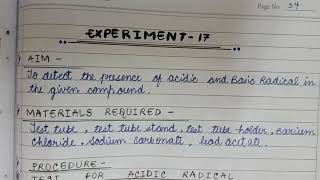 Page No. 34
EXPERIMENT-17
AIM -
To detect the presence of acidic and Basic Radical in
the given compound.
MATERIALS REQUIRED -
Test tube, test tube stand, test tube holder, Barium
chloride, Sodium carbonate, lead acetate.
PROCEDURE -
TEST FOR ACIDIC RADICAL